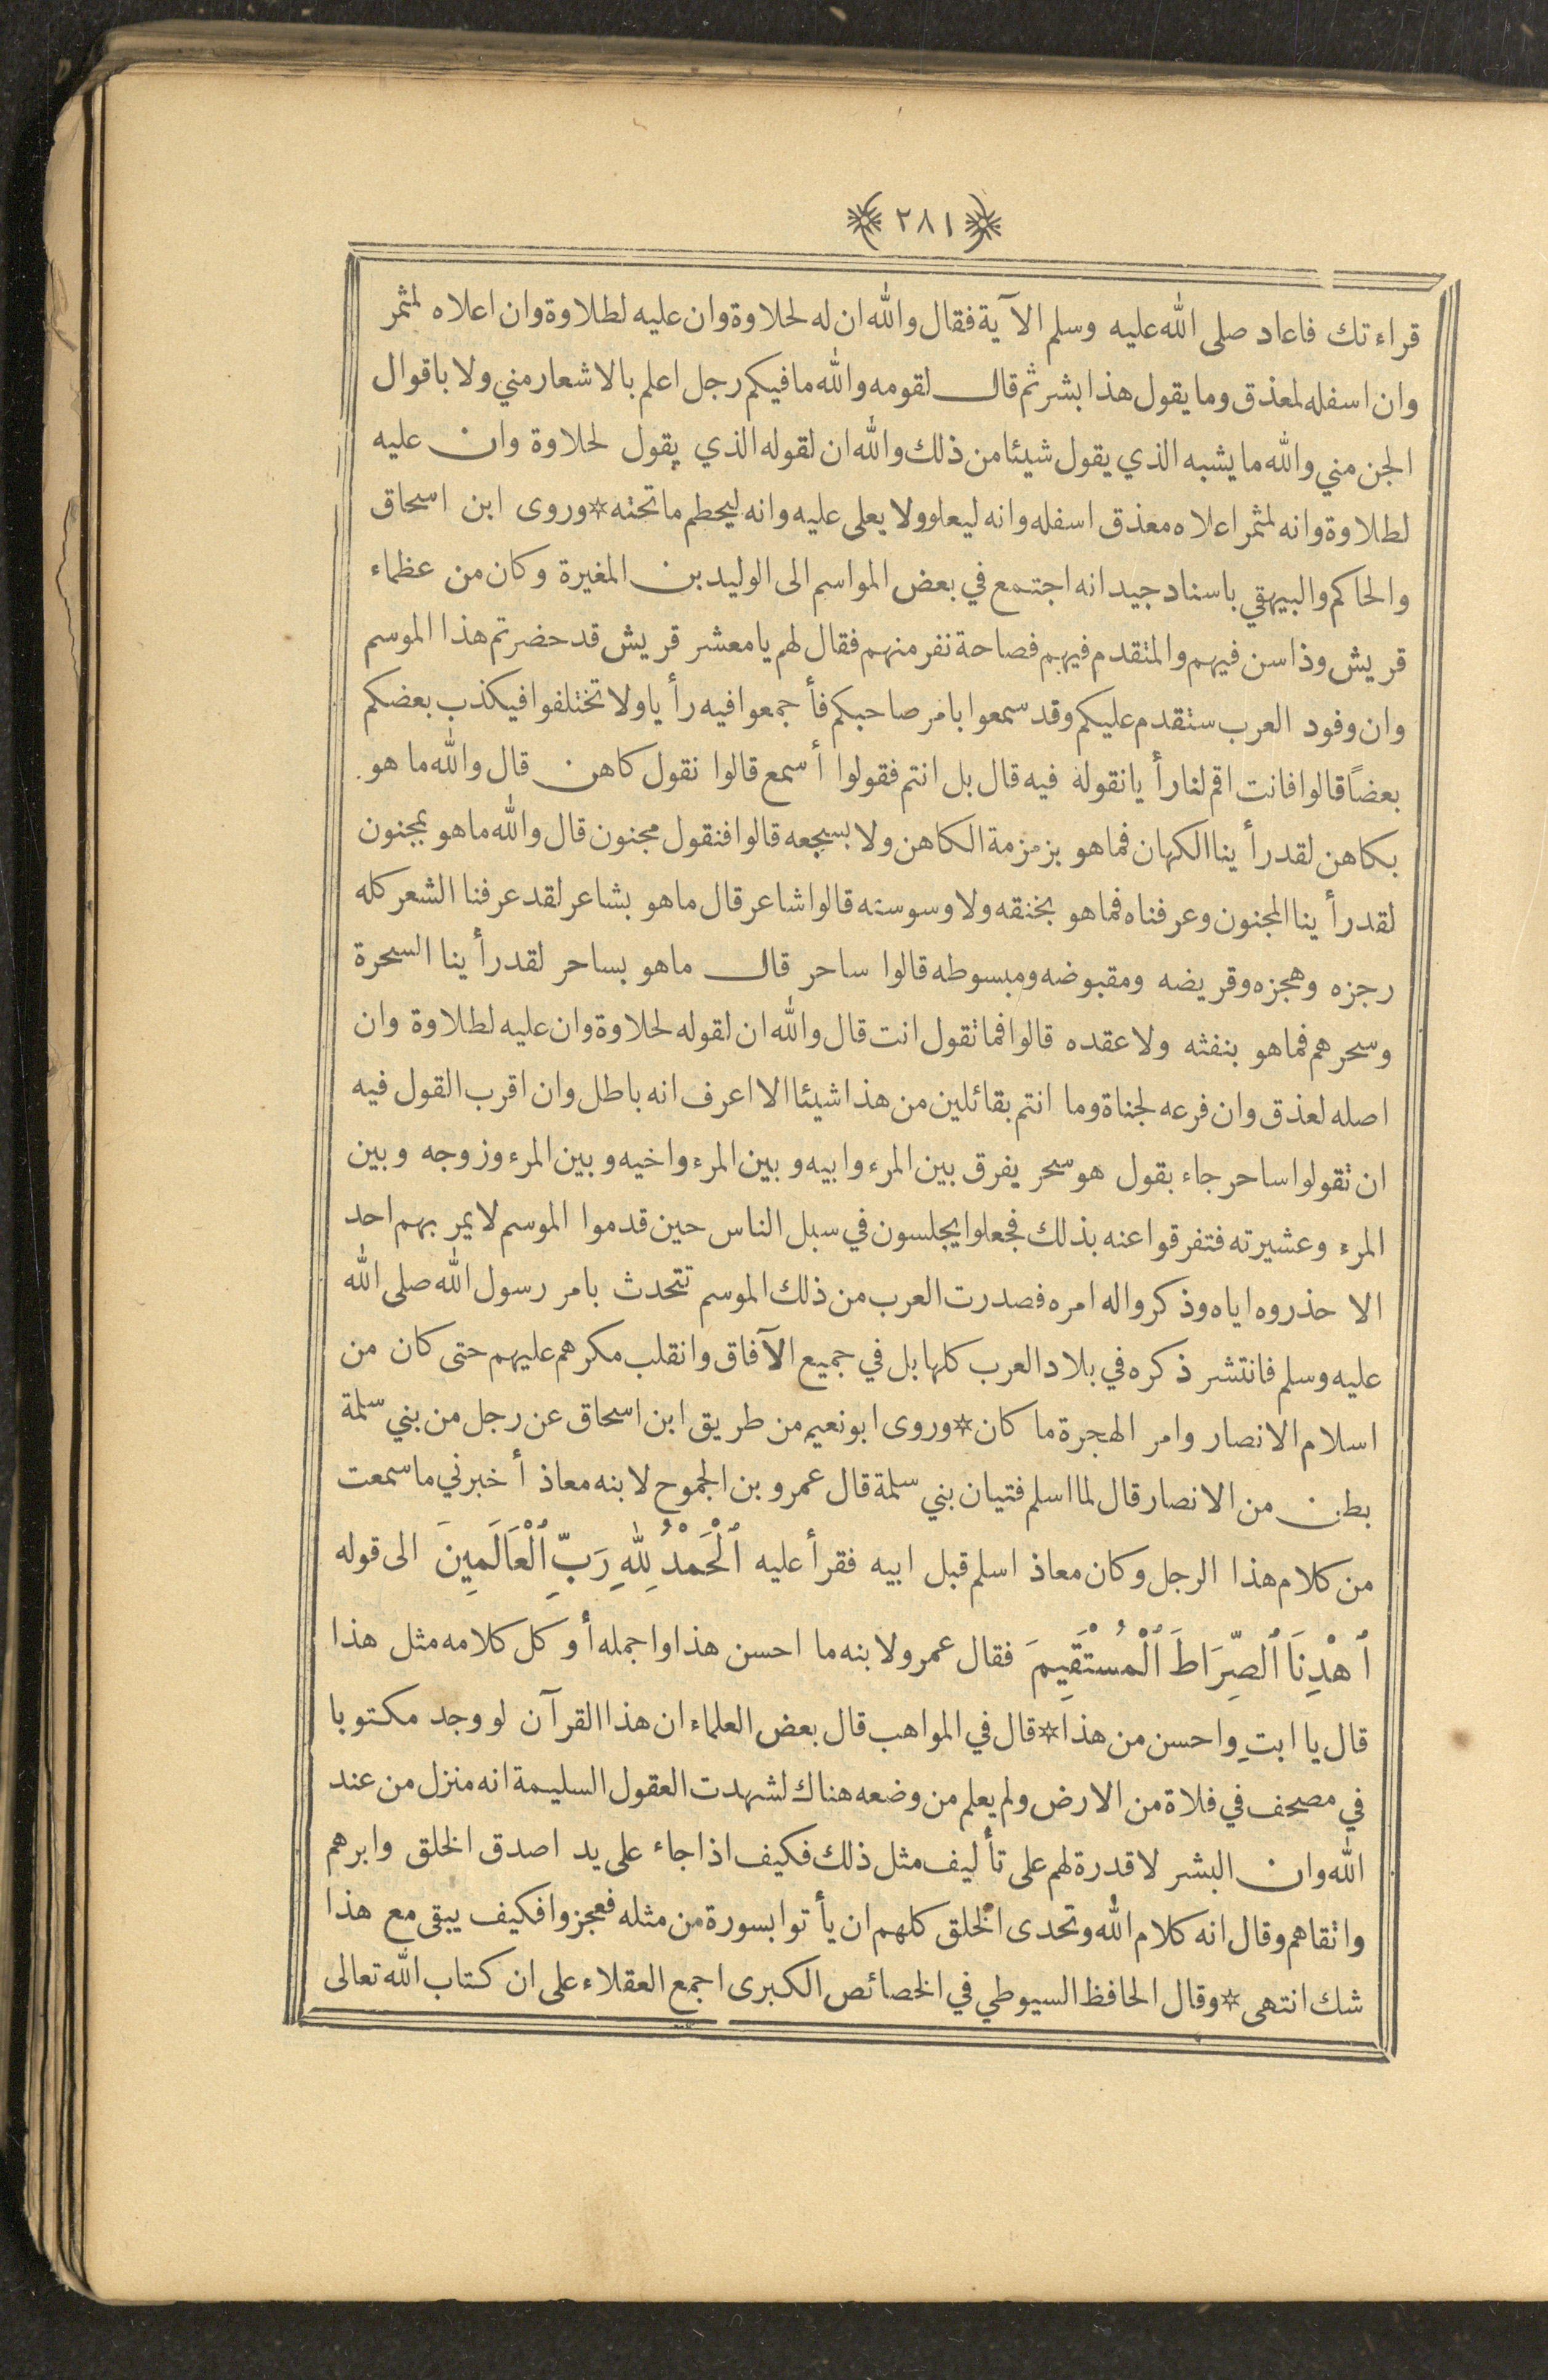 ﴿٢٨١﴾
قراءتك فاعاد صلى الله عليه وسلم الآية فقال والله ان له لحلاوة وان عليه لطلاوة وان اعلاه لمثمر
وان اسفله لمعذق وما يقول هذا بشر ثم قال لقومه والله ما فيكم رجل اعلم بالاشعار مني ولا باقوال
الجن مني والله ما يشبه الذي يقول شيئا من ذلك والله ان لقوله الذي يقول لحلاوة وان عليه
لطلاوة وانه لمثمر اعلاه معذق اسفله وانه ليعلو ولا يعلى عليه وانه ليحطم ما تحته * وروى ابن اسحاق
والحاكم والبيهقي باسناد جيد انه اجتمع في بعض المواسم الى الوليد بن المغيرة وكان من عظماء
قريش وذا سن فيهم والمتقدم فيهم فصاحة نفر منهم فقال لهم يا معشر قريش قد حضرتم هذا الموسم
وان وفود العرب ستقدم عليكم وقد سمعوا بامر صاحبكم فأجمعوا فيه رأيا ولا تختلفوا فيكذب بعضكم
بعضاً قالوا فانت اقم لنا رأيا نقوله فيه قال بل انتم فقولوا أسمع قالوا نقول كاهن قال والله ما هو
بكاهن لقد رأينا الكهان فما هو بزمزمة الكاهن ولا بسجعه قالوا فنقول مجنون قال والله ما هو بمجنون
لقد رأينا المجنون وعرفناه فما هو بخنقه ولا وسوسته قالوا شاعر قال ما هو بشاعر لقد عرفنا الشعر كله
رجزه وهجزه وقريضه ومقبوضه ومبسوطه قالوا ساحر قال ما هو بساحر لقد رأينا السحرة
وسحرهم فما هو بنفثه ولا عقده قالوا فما تقول انت قال والله ان لقوله لحلاوة وان عليه لطلاوة وان
اصله لعذق وان فرعه لجناة وما انتم بقائلين من هذا شيئا الا اعرف انه باطل وان اقرب القول فيه
ان تقولوا ساحر جاء بقول هو سحر يفرق بين المرء وابيه وبين المرء واخيه وبين المرء وزوجه وبين
المرء وعشيرته فتفرقوا عنه بذلك فجعلوا يجلسون في سبل الناس حين قدموا الموسم لا يمر بهم احد
الا حذروه اياه وذكروا له امره فصدرت العرب من ذلك الموسم تتحدث بامر رسول الله صلى الله
عليه وسلم فانتشر ذكره في بلاد العرب كلها بل في جميع الآفاق وانقلب مكرهم عليهم حتى كان من
اسلام الانصار وامر الهجرة ما كان * وروى ابو نعيم من طريق ابن اسحاق عن رجل من بني سلمة
بطن من الانصار قال لما اسلم فتيان بني سلمة قال عمرو بن الجموح لابنه معاذ أخبرني ما سمعت
من كلام هذا الرجل وكان معاذ اسلم قبل ابيه فقرأ عليه ٱلْحَمْدُ لِلّٰهِ رَبِّ ٱلْعَالَمِينَ الى قوله
ٱهْدِنَا ٱلصِّرَاطَ ٱلْمُسْتَقِيمَ فقال عمرو لابنه ما احسن هذا واجمله أو كل كلامه مثل هذا
قال يا ابتِ واحسن من هذا * قال في المواهب قال بعض العلماء ان هذا القرآن لو وجد مكتوبا
في مصحف في فلاة من الارض ولم يعلم من وضعه هناك لشهدت العقول السليمة انه منزل من عند
الله وان البشر لا قدرة لهم على تأليف مثل ذلك فكيف اذا جاء على يد اصدق الخلق وابرهم
واتقاهم وقال انه كلام الله وتحدى الخلق كلهم ان يأتوا بسورة من مثله فعجزوا فكيف يبقى مع هذا
شك انتهى * وقال الحافظ السيوطي في الخصائص الكبرى اجمع العقلاء على ان كتاب الله تعالى